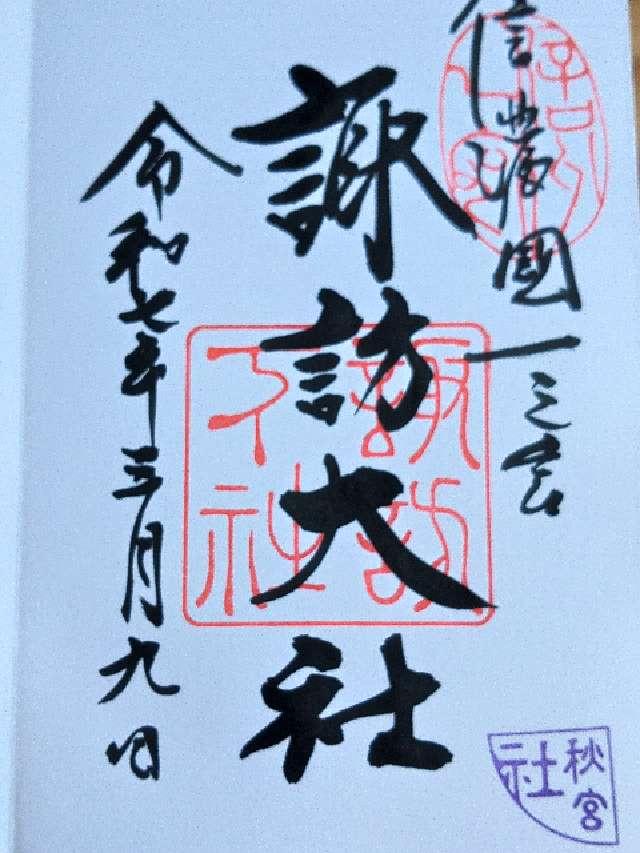 信濃國一之宮
諏訪大社
令和七年三月九日
諏訪
下社
秋宮
社